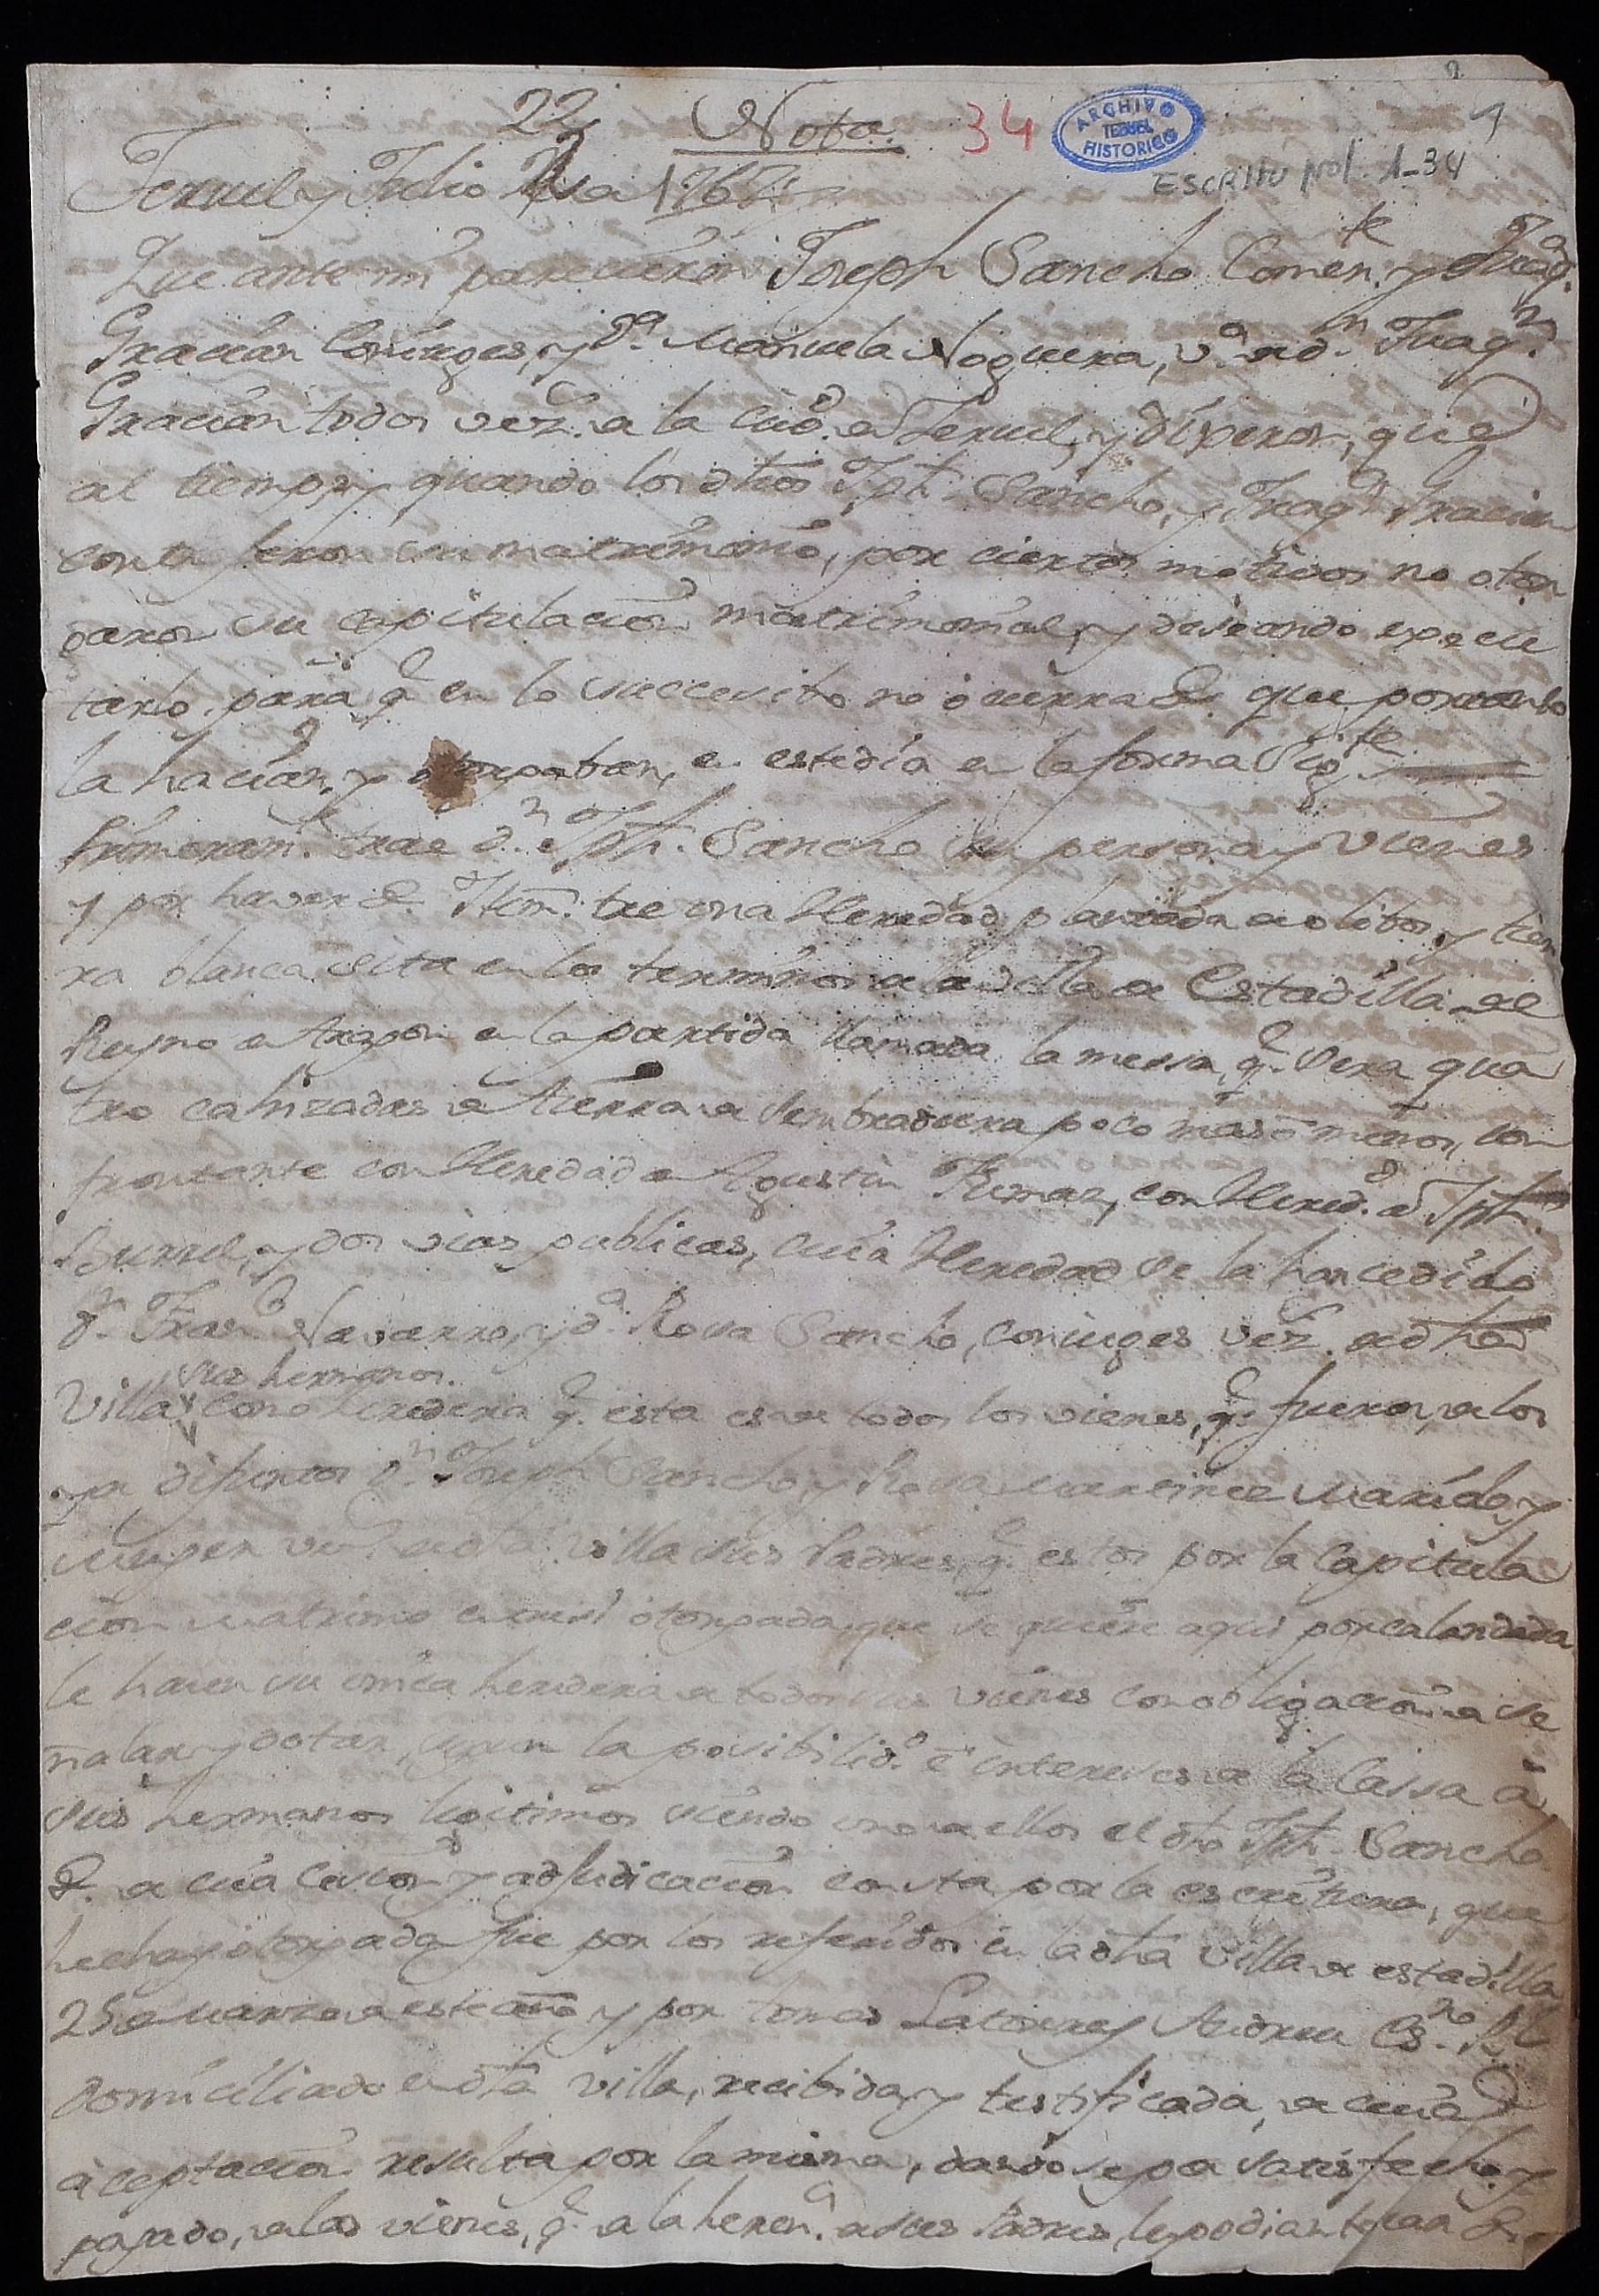 22 Nota. 34 ARCHIVO HISTORICO TERUEL
ESCRITU not. 1-34
Teruel y Julio de 1767
Que ante mi parecieron Joseph Sancho Comer.te y D.a
Gracian Coniuges, y D.a Manuela Noguera, v.a de d.n Juaq.n
Gracian todos vez.s de la Ciud. de Teruel, y Dixeron, que
al tiempo, y quando los dhos Jph. Sancho, y Gracian
contrajeron su matrimonio, por ciertos motivos no otor
garon su capitulacion matrimonial, y deseando
tarlo, para q.e en lo succesivo no ocurra &. que portanto
la hacian, y otorgaban, en este dia en la forma Sig.te
Primeram.te trae D.n Jph. Sancho su persona, y vienes
y por haver &. Item: trae una Heredad plantada de olibos, y tier
ra blanca sita en los terminos de la Villa de Estadilla del
Reyno de Aragon en la partida llamada la messa, q.e sera qua
tro cahizadas de tierra de sembradura poco mas ó menos, con
frontante con Heredad de Agustin, con Hered.d de Jph.
Burrel, y dos vias publicas, cuia Heredad se la han cedido
D.n Fran.co Navarro, y d.a Rosa Sancho, coniuges vez.s de dha
sus hermanos.
Villa como heredera q.e esta es de todos los vienes, q.e fueron, de los
ya difuntos D.n Joseph Sancho, y Rosa Martinez Marido, y
Muger vez.s de dha villa sus Padres, q.e estos por la Capitula
cion matrimo entre si otorgada, que se quiere aqui por calendada
le hacen su unica heredera de todos sus vienes con obligacion de se
ñalar, y dotar, segun la posibilid.d é intereses de la Cassa á
sus hermanos legitimos siendo uno de ellos el dho Jph. Sancho
&. de cuia cesion, y adjudicacion consta por la escritura, que
hecha, y otorgada fue por los referidos en la dha Villa de estadilla
25 de marzo de este año y por Tomas Latorre, y Andreu Es.no R.l
Domiciliado en dha villa, recibida, y testificada, de cuia
aceptacion resulta por la misma, dandose por satisfecho, y
pagado, de los vienes, q.e de la heren.a de sus Padres, le podian tocar &.